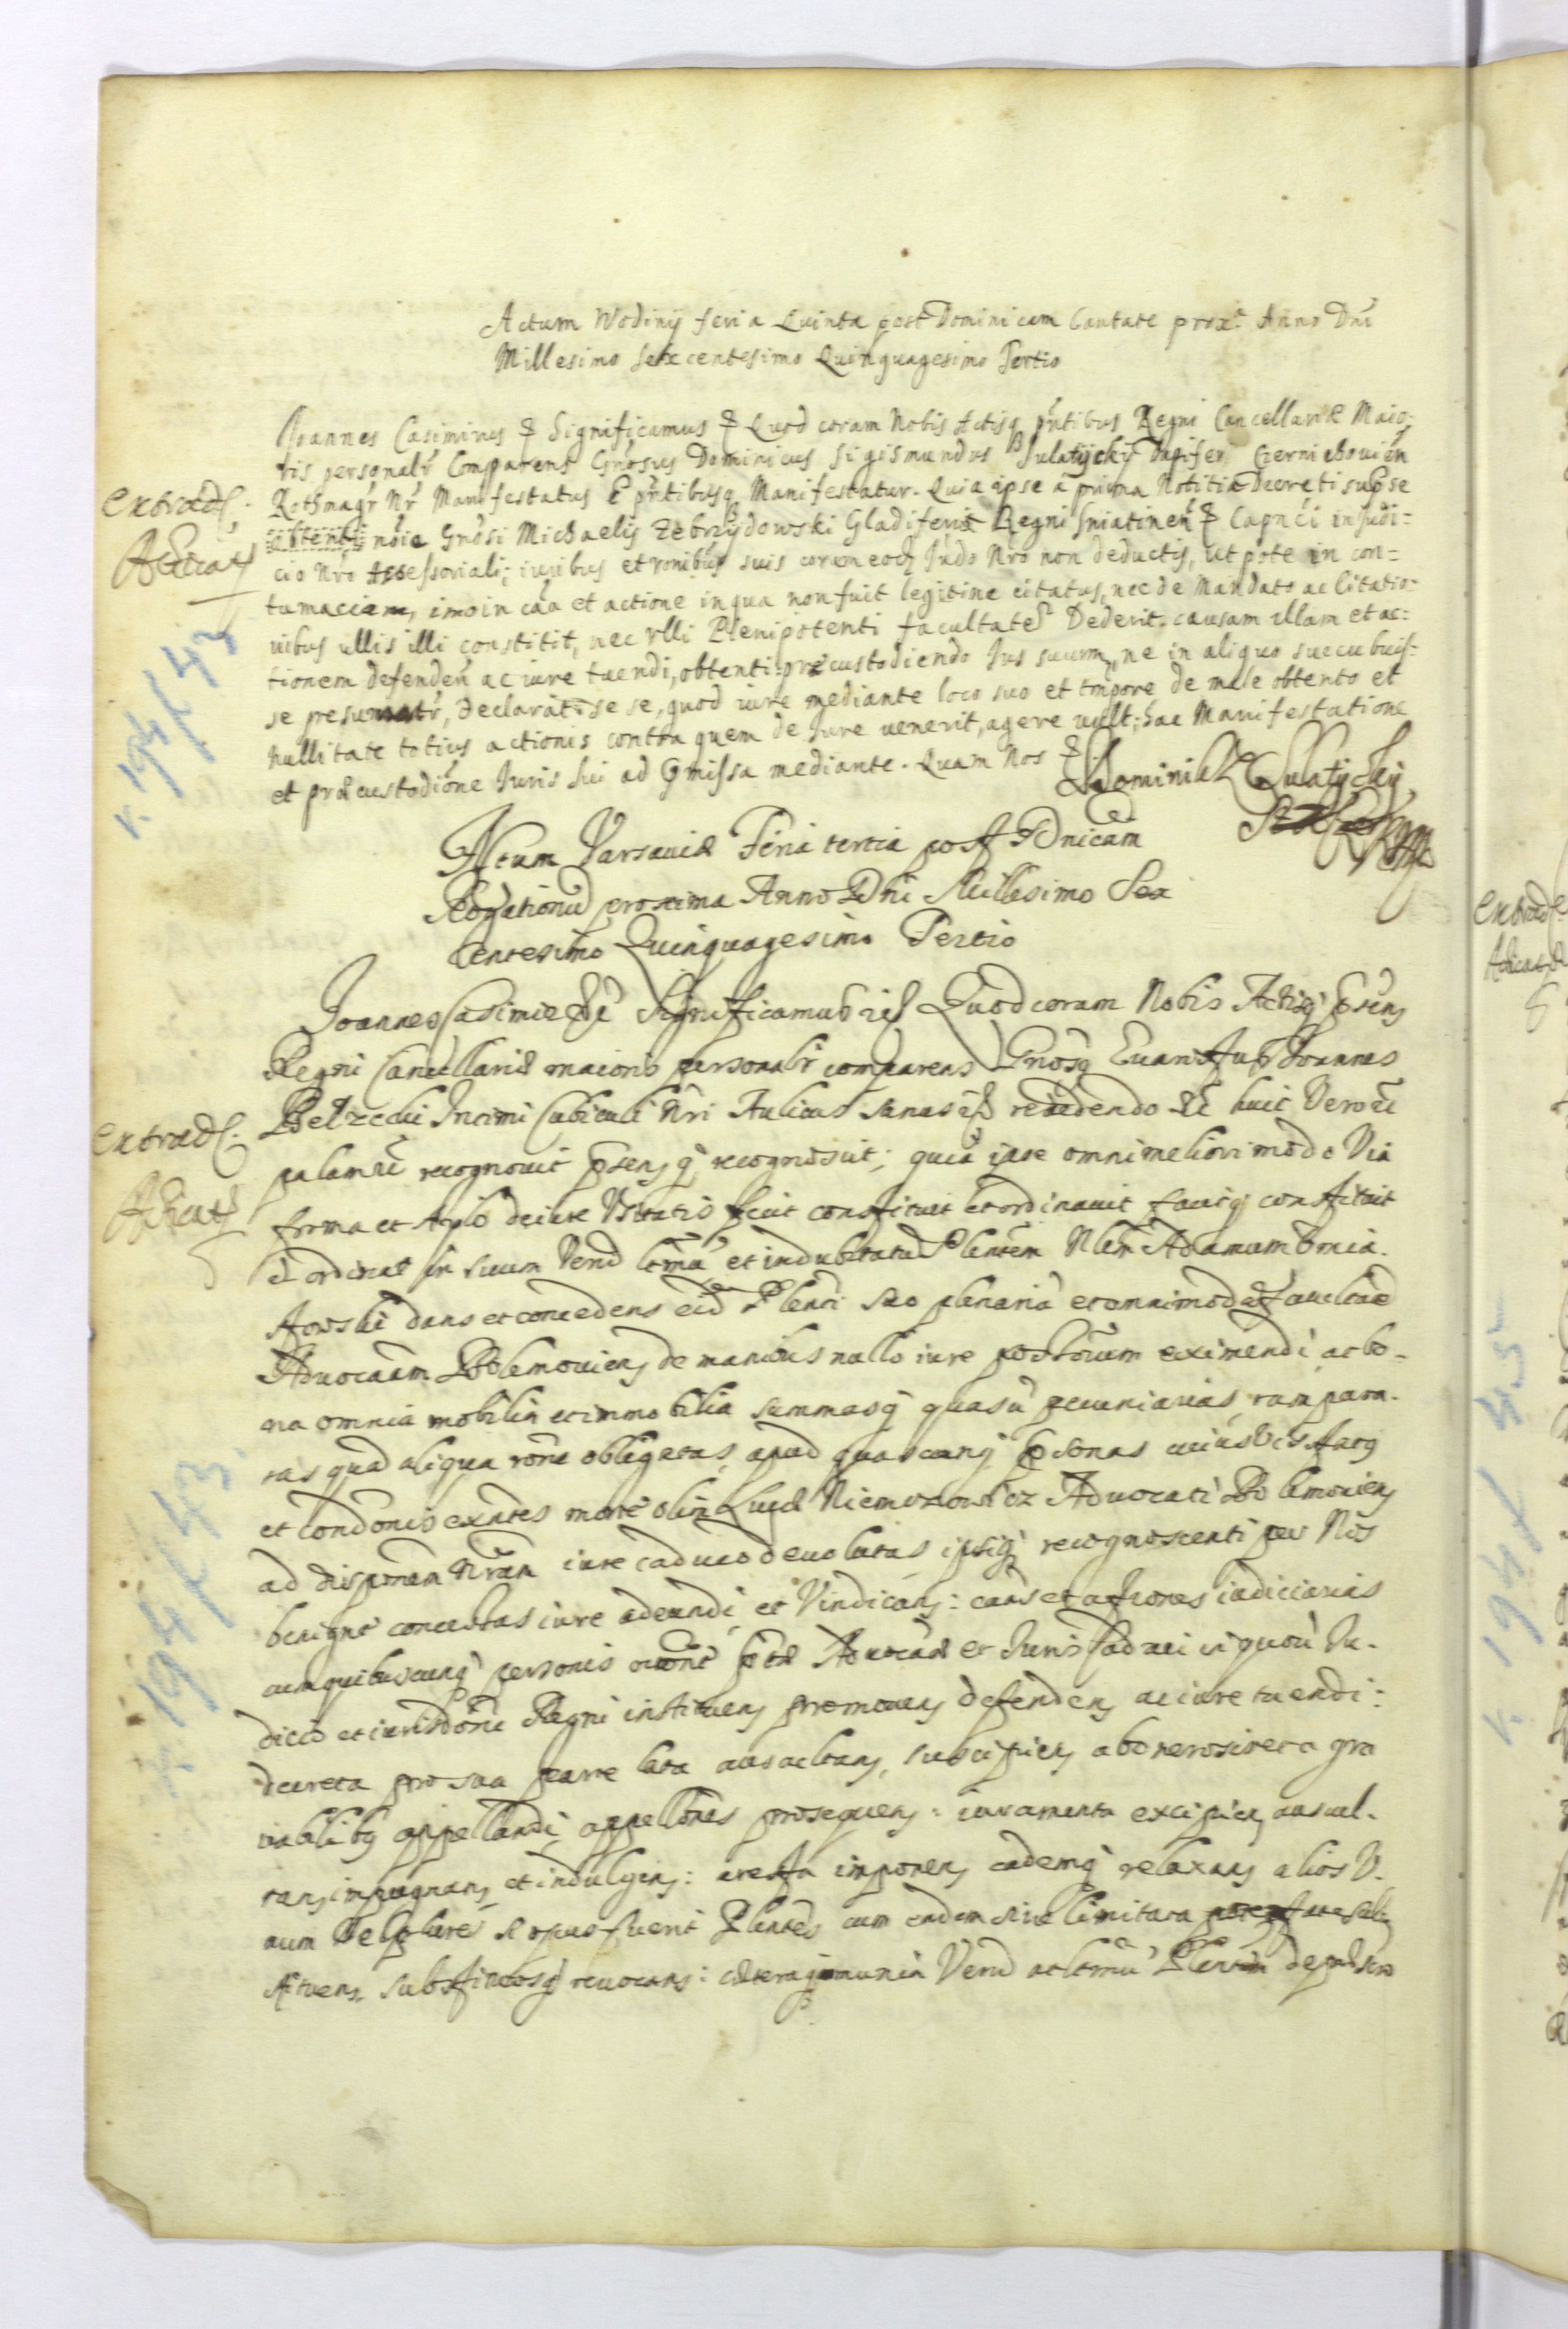 Actum Wodiny feria Quinta post Dominicam Cantate proxã Anno Dni
Millesimo Sexcentesimo Quinquagesimo Tertio
Joannes Casimirus Significamus Quod coram Nobis Actisq pñtibus Regni Cancellariæ Maio:
ris personalr Comparens Gnosus Dominicus Sigismundus Sulatycky Dapifer Czerniehouień
extrad.
Rothmagr Nr Manifestatus ẽ pñtibusq Manifestatur. Quia ipse a prima Notitia Decreti sup se
obtenti nõie Gnosi Michaelis Zebrzydowski Gladiferi Regni Sniatineñ Capnei in Judi:
cio Nro Assessoriali; iuribus et ronibus suis coram eodẽ Judo Nro non deductis, ut pote in con=
tumaciam, imo in caa et actione in qua non fuit legitime citatus, nec de Mandato ac Citatio:
nibus ullis illi constitit, nec ulli Plenipotenti facultatẽ Dederit causam illam et ac:
tionem defendeñ ac iure tuendi, obtenti: præcustodiendo Jus suum, ne in aliquo succubuis:
se presumatr, Declarat se se, quod iure mediante loco suo et tmpore de male obtento et
nullitate totius actionis contra quem de Jure uenerit, agere uult; hac Manifestatione
et præcustodione Juris sui ad præmissa mediante. Quam Nos
Dominik Sulatycky
Actum Varsauiæ Feria tertia post Dnicam
Rogationũ proxima Anno Dni Millesimo Sex
centesimo Quinquagesimo Tertio
Joannes Casimir Significamus Quod coram Nobis Actisq
Regni Cancellariæ maioris personalr comparens Gnosq Euaristus Joannes
extrad.
Belzecki Intimi Cubiculi Nri Aulicus Sanus redendo huic Foro
palamq recognouit recognoscit; quia ipse omni meliori modo Via
forma et stylo de iure Usitatis fecit constituit et ordinauit facitq constituit
et ordinat in suum Verũ ltmũ et indubitatũ Plentem Nlem Adamum Bnia.
stowski dans et concedens eid Plenti suo plenariã et omnimodã facultatẽ
Aduocaam de manibus nullo iure eximendi ac bo-
na omnia mobilia et immobilia summasq quasuis pecuniarias, tam para-
tas quã aliqua rone obligatas, apud quascunq psonas cuiusuis statq
et condonis exntes morte olim Lucæ Niemirowicz Aduocati
ad dispnem Nram iure caduco deuolutas ipsiq recognoscenti per Nos
benigne concessas iure adeundi et Vindicans: caas et actiones iudiciarias
cum quibuscunq personis Aduocaæ et Juris caduci in quouis Ju-
dicio et iurisdone Regni instituens promouens defendens ac iure tuendi:
decreta pro sua parte lata auscultans, suscipiens ab onerosis et a gra
uabilibq appellandi, appellones prosequens: iuramenta excipiens auscul-
tans impugnans et indulgens: aresta imponens eademq relaxans alios U-
num uel plures si opus fuerit Plentes cum eadem siue limitata
stituens, substitutosq reuocans: cæteraq munia Veri ac ltmi